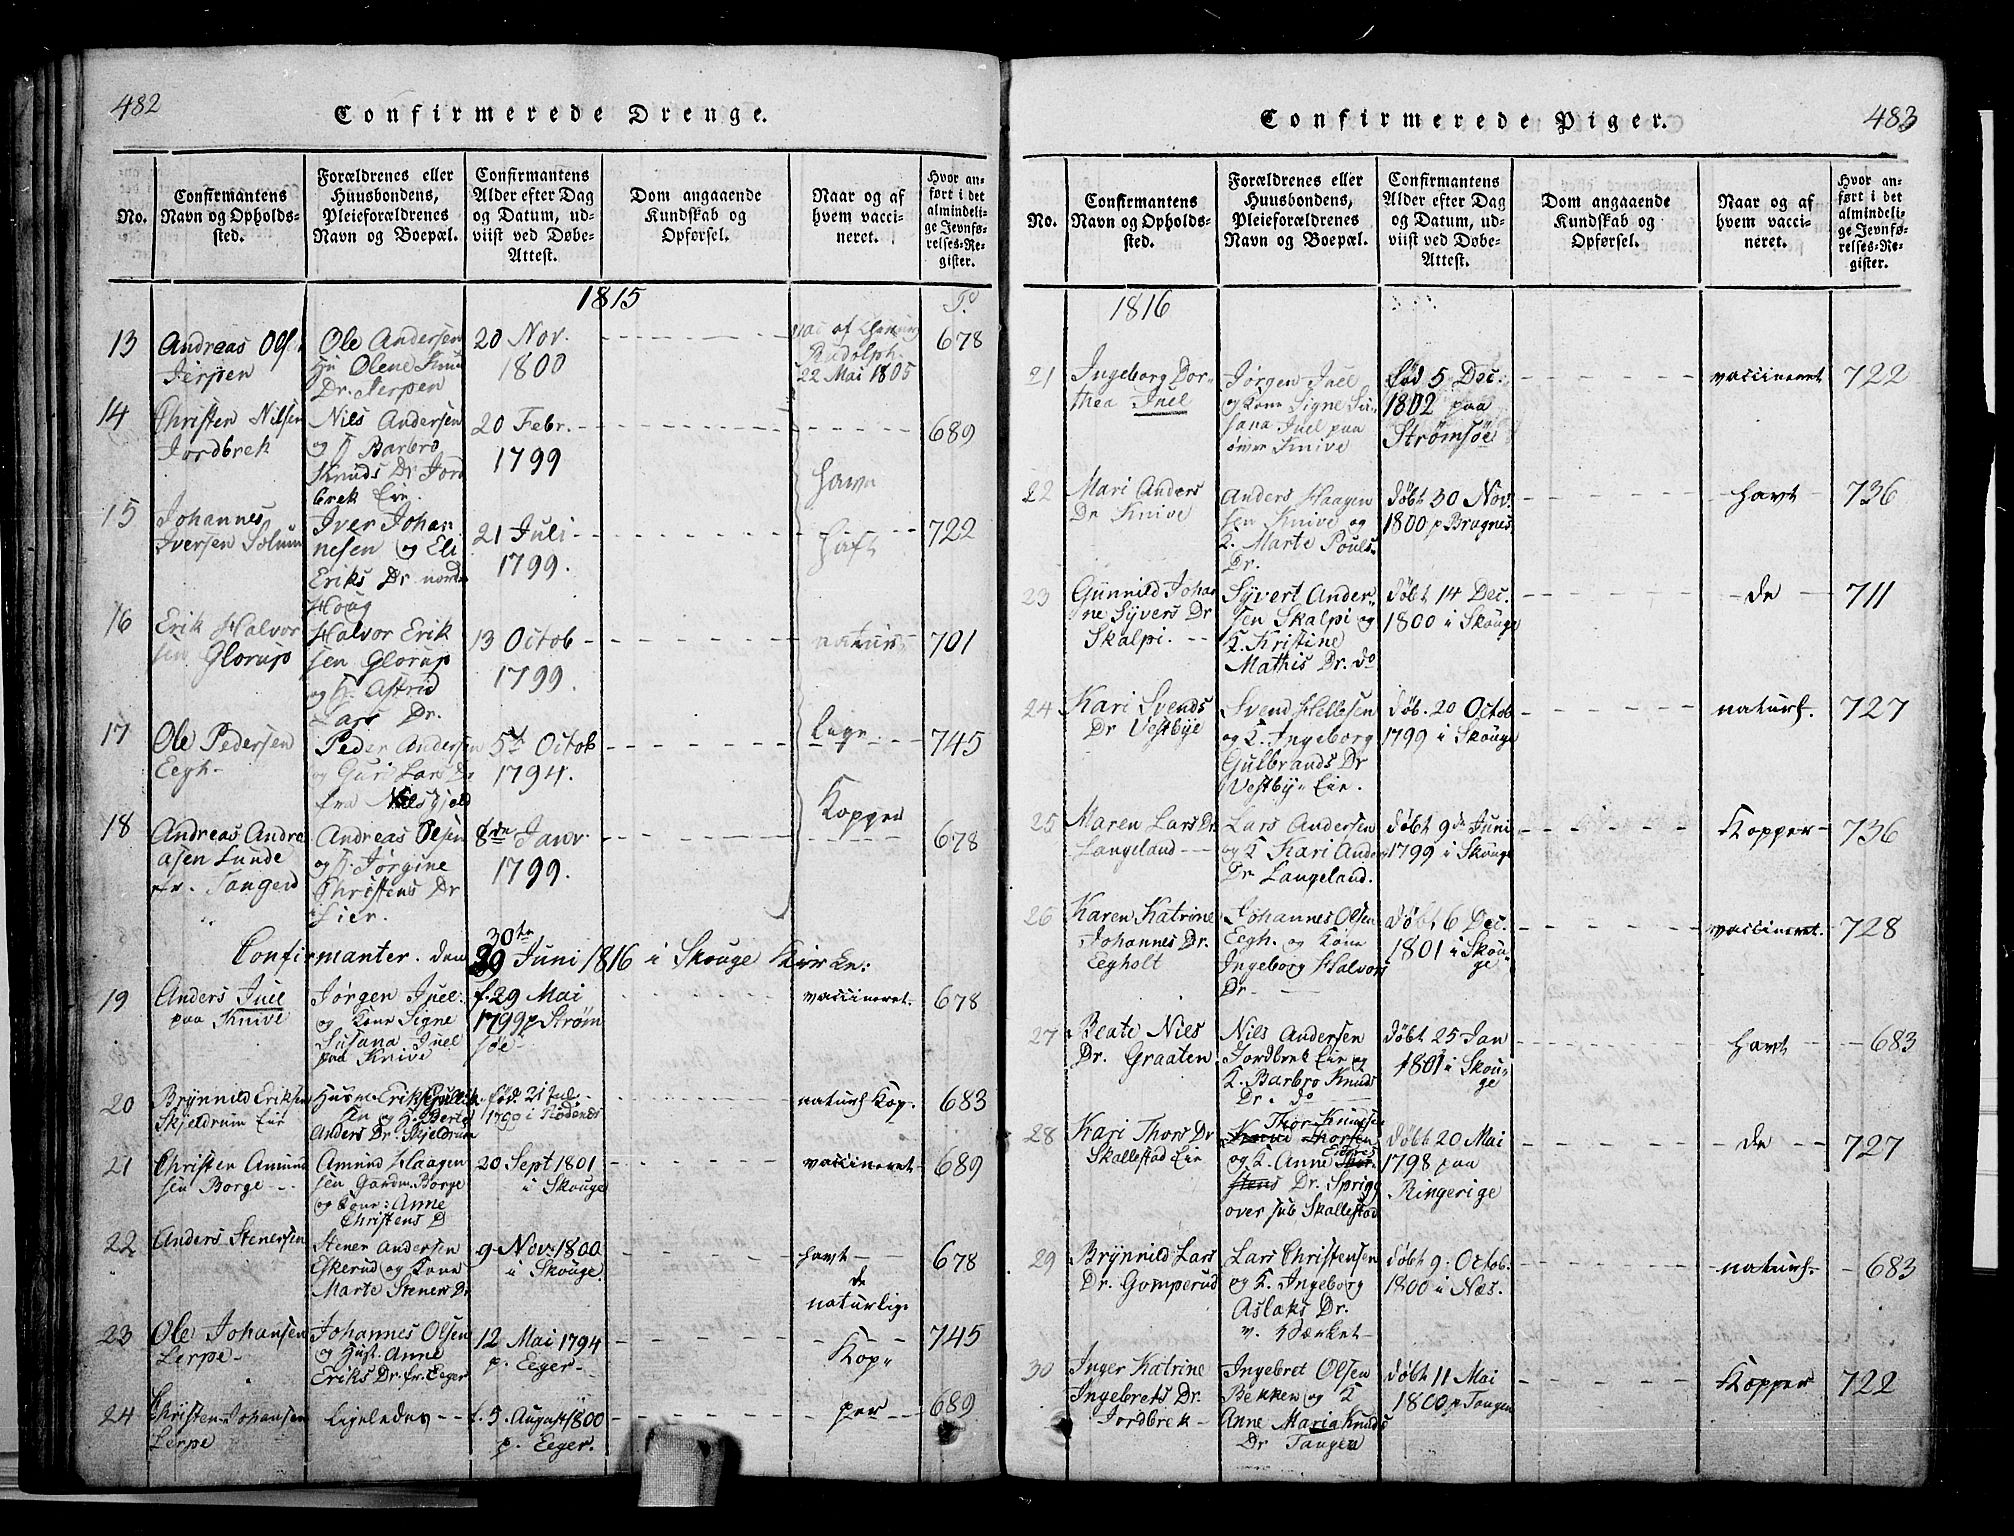 482
Confirmerede Drenge.
No.
Confirmantens
Navn og Opholds-
sted.
Forældrenes eller
Huusbondens,
Pleieforældrenes
Navn og Boepæl.
Confirmantens
Alder efter Dag
og Datum, ud-
viist ved Døbe-
Attest.
Dom angaaende
Kundskab og
Opførsel.
Naar og af
hvem vacci-
neret.
Hvor an-
ført i det
almindeli-
ge Jevnfø-
relses-Re-
gister.
1815
13
Andreas Olsen
Jerpen
Ole Andersen
Olene
Dr. Jerpen
20 Nov.
1800
vac af
Rudolph
22 Mai 1805
678
14
Christen Nilsen
Jordbrek
Nils Andersen
og H Barbro
Knuds Dr Jord
brek Eie.
20 Febr.
1799
689
15
Johannes
Iversen Solum
Iver Johan
nesen og Eli
Eriks Dr nordr
Houg
21 Juli
1799.
havn
haft
722
16
Erik Halvor
sen Glorup
Halvor Erik
sen Glorup
og H. Astrid
Lars Dr.
13 Octob
1799.
natur
701
17
Ole Pedersen
Eegh
Peder Andersen
og Guri Lars Dr
5te Octob
1794.
lige
745
18
Andreas Andre
asen Lunde
fr. Tangen
Andreas Olsen
og H. Jørgine
Christens Dr
Lier.
8de Janv
1799.
Kopper
678
Confirmanter den 30te Juni 1816 i Skouge Kirke:
19
Anders Juel
paa Knive
Jørgen Juel
og Kone Signe
Susana Juel
paa Knive
f. 29 Mai
1799 p Strøm
søe
vaccineret
678
20
Brynnild Eriksen
Skjeldrum Eie
Husm. Erik
sen og H. Berte
Anders Dr. Skjeldrum
fød. 21 Jul.
naturl Kop.
683
21
Christen Amund
sen Borge
Amund Haagen
sen Gardm. Borge
og Kone: Anne
Christens D
20 Sept 1801
i Skouge
vaccineret
689
22
Anders Stenersen
Stener Andersen
Eskerud og Kone
Marte Steners Dr
9 Nov. 1800
i Skouge.
havt
de
naturlige
678
23
Ole Johansen
Lerpe
Johannes Olsen
og Hust. Anne
Eriks Dr. fr. Eeger
12 Mai 1794
p. Eeger
Kop
745
24
Christen Johansen
Lerpe
Ligeledes
f. 5. August 1800
p. Eeger.
per
689
483
Confirmerede Piger.
No.
Confirmantens
Navn og Opholds-
sted.
Forældrenes eller
Huusbondens,
Pleieforældrenes
Navn og Boepæl.
Confirmantens
Alder efter Dag
og Datum, ud-
viist ved Døbe-
Attest.
Dom angaaende
Kundskab og
Opførsel.
Naar og af
hvem vacci-
neret.
Hvor an-
ført i det
almindeli-
ge Jevnfø-
relses-Re-
gister.
1816
21
Ingeborg Dor-
thea Juel
Jørgen Juel
og Kone Signe Su-
sana Juel paa
øvre Knive
fød 5 Dec.
1802 paa
Strømsøe
vaccineret
722
22
Mari Anders
Dr Knive
Anders Haagen
sen Knive og
K. Marte Pouls
Dr.
døbt 30 Nov.
1800 p Bragnes
havt
736
23
Gunnild Johan
ne Syvers Dr
Skalpi.
Syvert Ander
sen Skalpi og
K. Kristine
Mathis Dr. do
døbt 14 Dec.
1800 i Skouge
de
711
24
Kari Svends
Dr Vestbye
Svend Hellesen
og K. Ingeborg
Gulbrands Dr
Vestby Eie.
døb. 20 Octob
1799 i Skouge
naturl.
727
25
Maren Lars Dr.
Langeland
Lars Andersen
og K Kari Anders
Dr Langeland.
døbt 9de Juni
1799 i Skouge
Kopper
736
26
Karen Katrine
Johannes Dr.
Eegholt
Johannes Olsen
Eegh. og Kone
Ingeborg Halvors
Dr
døbt 6 Dec.
1801 i Skou
ge
vaccineret.
728
27
Beate Niels
Dr. Graaten
Nils Andersen
Jordbrek Eie og
K. Barbro Knuds
Dr. do
døbt 25 Jan
1801 i Skou-
ge
havt
683
28
Kari Thors Dr
Skallestad Eie
Thor Knudsen
og K. Anne
Dr. Sprigg
over sub Skallestad
døbt 20 Mai
1798 paa
Ringerige
de
727
29
Brynnild Lars
Dr. Gomperud
Lars Christensen
og K. Ingeborg
Aslaks Dr.
v. Værket
døbt 9. Octob.
1800 i Næs.
naturl.
683
30
Inger Katrine
Ingebrets Dr.
Jordbrek
Ingebret Olsen
Bekken og K
Anne Maria Knuds
Dr Tangen
døbt 11 Mai
1800 p Tangen
Kopper
722